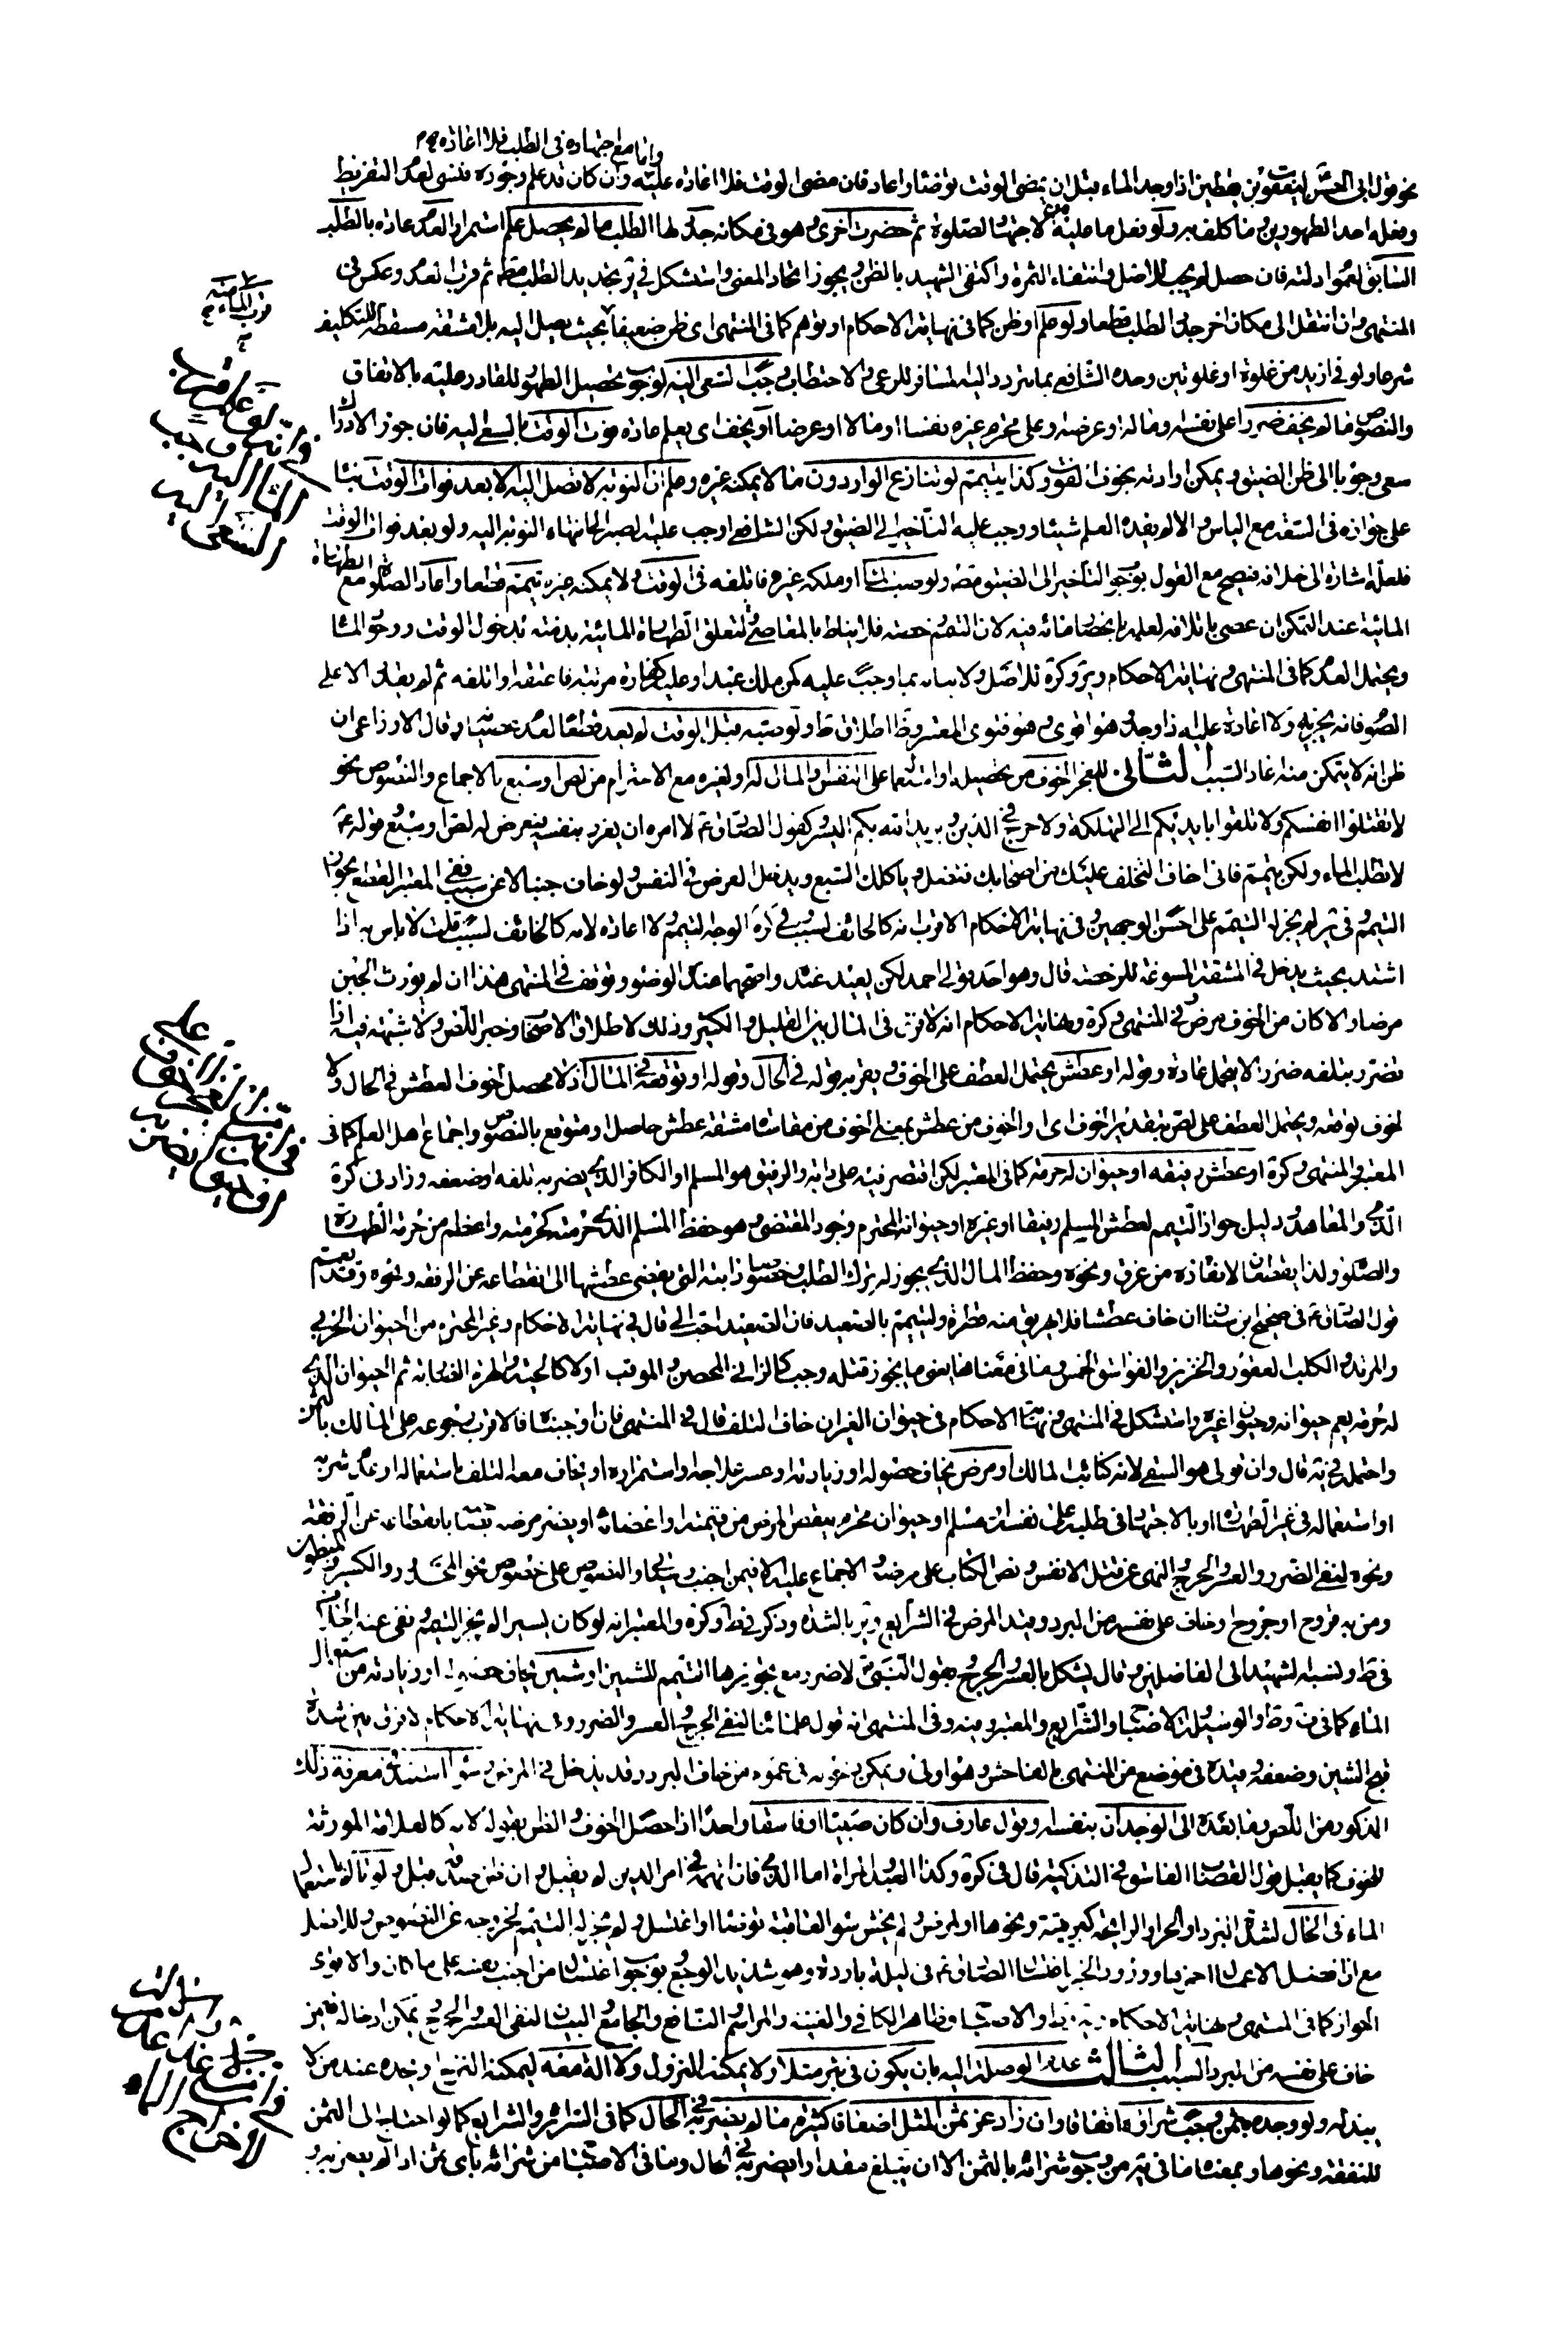 واما مع اجتهاده في الطلب فلا اعادة
نحو قول ابي الحسن ليعقوب بن يقطين اذا وجد الماء قبل ان يمضي الوقت توضأ واعاد فان مضى الوقت فلا اعادة عليه وان كان قد علم وجوده فنسي لعدم التفريط
وفعله احد الطهورين وما كلف به ولو فعل ما عليه من الاجتهاد لصلوة ثم حضرت اخرى وهو في مكانه جدد لها الطلب ما لم يحصل علم استمرار العدم عادة بالطلب
السابق لعموم ادلته فان حصل لم يجب للاصل وانتفاء الثمرة واكتفى الشهيد بالظن ويجوز اتحاد المعنى واستشكل في ير تجديد الطلب مط ثم قرب العدم وعكس في
المنتهى وان انتقل الى مكان اخر جدد الطلب قطعا ولو علم او ظن كما في نهاية الاحكام او توهم كما في المنتهى اى ظن ضعيفا بحيث يصل اليه بلا مشقة مسقطة للتكليف
شرعا ولو في ازيد من غلوة او غلوتين وحده الشافعي بما يتردد اليه المسافر للرعي والاحتطاب وجب السعى اليه لوجوب تحصيل الطهور للقادر عليه بالاتفاق
والنصوص ما لم يخف ضررا على نفسه وماله او عرضه وعلى محترم غيره نفسا او مالا او عرضا او يخف اى يعلم عادة فوت الوقت بالسعى اليه فان جوز الادراك
سعى وجوبا الى ظن الضيق ويمكن ارادته بخوف الفوت وكذا يتيمم لو تنازع الواردون ما لا يمكنه غيره وعلم ان النوبة لا تصل اليه الا بعد فوات الوقت بناء
على جوازه في السعة مع الياس والا لم يفده العلم شيئا ووجب عليه التأخير الى الضيق ولكن الشافعي اوجب عليه الصبر الى انتهاء النوبة اليه ولو بعد فوات الوقت
فلعله اشارة الى خلافه فيصح مع القول بوجوب التأخير الى الضيق ولو صب الماء او ملكه غيره فاتلفه في الوقت ولا يمكنه غيره تيمم قطعا واعاد الصلوة مع الطهارة
المائية عند التمكن ان عصى باتلافه لعلمه بانحصار مائه فيه لان التيمم رخصة فلا يناط بالمعاصي ولتعلق الطهارة المائية بذمته بدخول الوقت ووجود الماء
ويحتمل العدم كما في المنتهى ونهاية الاحكام وير وكرة للاصل والاتيان بما وجب عليه كمن ملك عبدا وعليه كفارة مرتبة فاعتقه او اتلفه ثم لم يقدر الا على
الصوم فانه يجزيه ولا اعادة عليه اذا وجد وهو اقوى وهو فتوى المعتبر وظ اطلاق ط ولو صبه قبل الوقت لم يعد قطعا لعدم عصيانه وقال الاوزاعي ان
ظن انه لا يتمكن منه اعاد السبب الثاني للعجز الخوف من تحصيله او استعماله على النفس والمال له او لغيره مع الاحترام من لص او سبع بالاجماع والنصوص نحو
لا تقتلوا انفسكم ولا تلقوا بايديكم الى التهلكة ولا حرج في الدين ويريد الله بكم اليسر كقول الصادق ع لا امره ان يغرر بنفسه فيعرض له لص او سبع وقوله ع
لا تطلب الماء ولكن تيمم فاني اخاف التخلف عليك من اصحابك فتضل وياكلك السبع ويدخل العرض في النفس ولو خاف جبنا لا عن سبب ففي المعتبر القطع بجواز
التيمم وفي ير لم يجز له التيمم على احسن الوجهين وفي نهاية الاحكام الاقرب انه كالخائف لسبب وفي كرة الوجه التيمم ولا اعادة لانه كالخائف لسبب قلت لا باس به اذا
اشتد بحيث يدخل في المشقة المسوغة للرخصة قال وهو احد قولي احمد لكن يعيد عنده واصحهما عنده الوضوء وتوقف في المنتهى هذا ان لم يورث الجبن
مرضا والا كان من الخوف مرض وفي المنتهى وكرة ونهاية الاحكام انه لا فرق في المال بين القليل والكثير وذلك لاطلاق الاصحاب وخبر اللص ولا شبهة فيه اذا
تضرر بتلفه ضررا لا يتحمل عادة وقوله او عطش يحتمل العطف على الخوف ويقربه قوله في الحال وقوله او توقعه في المآل اذ لا محصل لخوف العطش في الحال ولا
لخوف توقعه ويحتمل العطف على لص بتقدير الخوف اى او الخوف من عطش بمعنى الخوف من مقاساة مشقة عطش حاصل او متوقع بالنصوص واجماع اهل العلم كما في
المعتبر والمنتهى وكرة او عطش رفيقه او حيوان له حرمة كما في المعتبر لكن اقتصر فيه على دابته والرفيق هو المسلم او الكافر الذى يضر به تلفه او ضعفه وزاد في كرة
الذمي والمعاهد ودليل جواز التيمم لعطش المسلم رفيقا او غيره او حيوانه المحترم وجود المقتضى وهو حفظ المسلم الذى حرمته كحرمته واعظم من حرمة الطهارة
والصلوة ولذا يقطعان لانقاذه من غرق ونحوه وحفظ المال الذى يجوز له ترك الطلب وخصوصا دابته التي يفضي عطشها الى انقطاعه عن الرفقة ونحوه وقد يعمم
قول الصادق ع في صحيح ابن سنان ان خاف عطشا فلا يهريق منه قطرة وليتيمم بالصعيد فان الصعيد احب الي قال في نهاية الاحكام وغير المحترم من الحيوان الحربي
والمرتد والكلب العقور والخنزير والفواسق الخمس وما في معناها يعني ما يجوز قتله وجب كالزاني المحصن والموقب او لا كالحية والهرة الضارية ثم الحيوان الذى
له حرمة يعم حيوانه وحيوان غيره واستشكل في المنتهى ونهاية الاحكام في حيوان الغير ان خاف التلف قال في المنتهى فان اوجبناه فالاقرب رجوعه على المالك بالثمن
واحتمله في ية قال وان تولى هو السقي لانه كنائب المالك او مرض يخاف حصوله او زيادته او عسر علاجه او استمراره او يخاف معه التلف باستعماله او عدم شربه
او استعماله في غير الطهارة او بالاجتهاد في طلبه على نفس مسلم او حيوان محترم ينقص المرض من قيمته او اعضائه او يضر مرضه بانقطاعه عن الرفقة
ونحوه لنفي الضرر والعسر والحرج والنهي عن قتل الانفس ونص الكتاب على مرضه والاجماع عليه الا فيمن اجنب مختارا والنصوص على خصوص نحو المجدور والكسير والمبطون
ومن به قروح او جروح او خاف على نفسه من البرد وقيد المرض في الشرايع وير بالشدة وذكر في ط وكرة والمعتبر انه لو كان يسيرا لم يجز التيمم ونفى عنه الخلاف
في ط ونسبه الشهيد الى الفاضلين وقال يشكل بالعسر والحرج وبقول النبي ص لا ضرر مع تجويزهما التيمم للشين او شين يخاف حصوله او زيادته من استعمال
الماء كما في ف وط والوسيلة والاصباح والشرايع والمعتبر وفي المنتهى انه قول علمائنا لنفي الحرج والعسر والضرر وفي نهاية الاحكام لا فرق بين شدة
قبح الشين وضعفه وقيده في موضع من المنتهى بالفاحش وهو اولى ويمكن دخوله في عموم من خاف البرد وقد يدخل في المرض وسواء استند في معرفة ذلك
المذكور من اللص وما بعده الى الوجدان بنفسه او قول عارف وان كان صبيا او فاسقا واحدا اذا حصل الخوف والظن بقوله لانه كالعلامة المورثة
للخوف كما يقبل قول القصاب الفاسق في التذكية قال في كرة وكذا العبد والمراة اما الذمي فان اتهمه في امر الدين لم يقبل وان ظن صدقه قبل ولو تالم باستعمال
الماء في الحال لشدة البرد او الحر او الرايحة كبريتية ونحوها او لمرض لم يخش سوء العاقبة توضأ او اغتسل ولم يجز له التيمم لخروجه عن النصوص وللاصل
مع ان افضل الاعمال احمزها وورود الخبر باغتسال الصادق ع في ليلة باردة وهو شديد الوجع بوجوب اغتسال من اجنب بنفسه على ما كان والاقوى
الجواز كما في المنتهى ونهاية الاحكام وظاهر الكافي والغنية والمراسم والنافع والجامع لنفي العسر والحرج ويمكن ادخاله فيمن
خاف على نفسه من البرد السبب الثالث عدم الوصلة اليه بان يكون في بئر مثلا ولا يمكنه النزول ولا آلة معه ليمكنه النزح او يجده عند من لا
يبذله ولو وجده بثمن وجب شراؤه اتفاقا وان زاد عن ثمن المثل اضعافا كثيرة ما لم يضر به في الحال كما في السرائر والشرايع كما لو احتاج الى الثمن
للنفقة ونحوها وبمعناه ما في ير من وجوب شرائه بالثمن الا ان يبلغ مقدارا يضر به في الحال وما في الاصباح من شرائه باى ثمن اذا لم يضر به